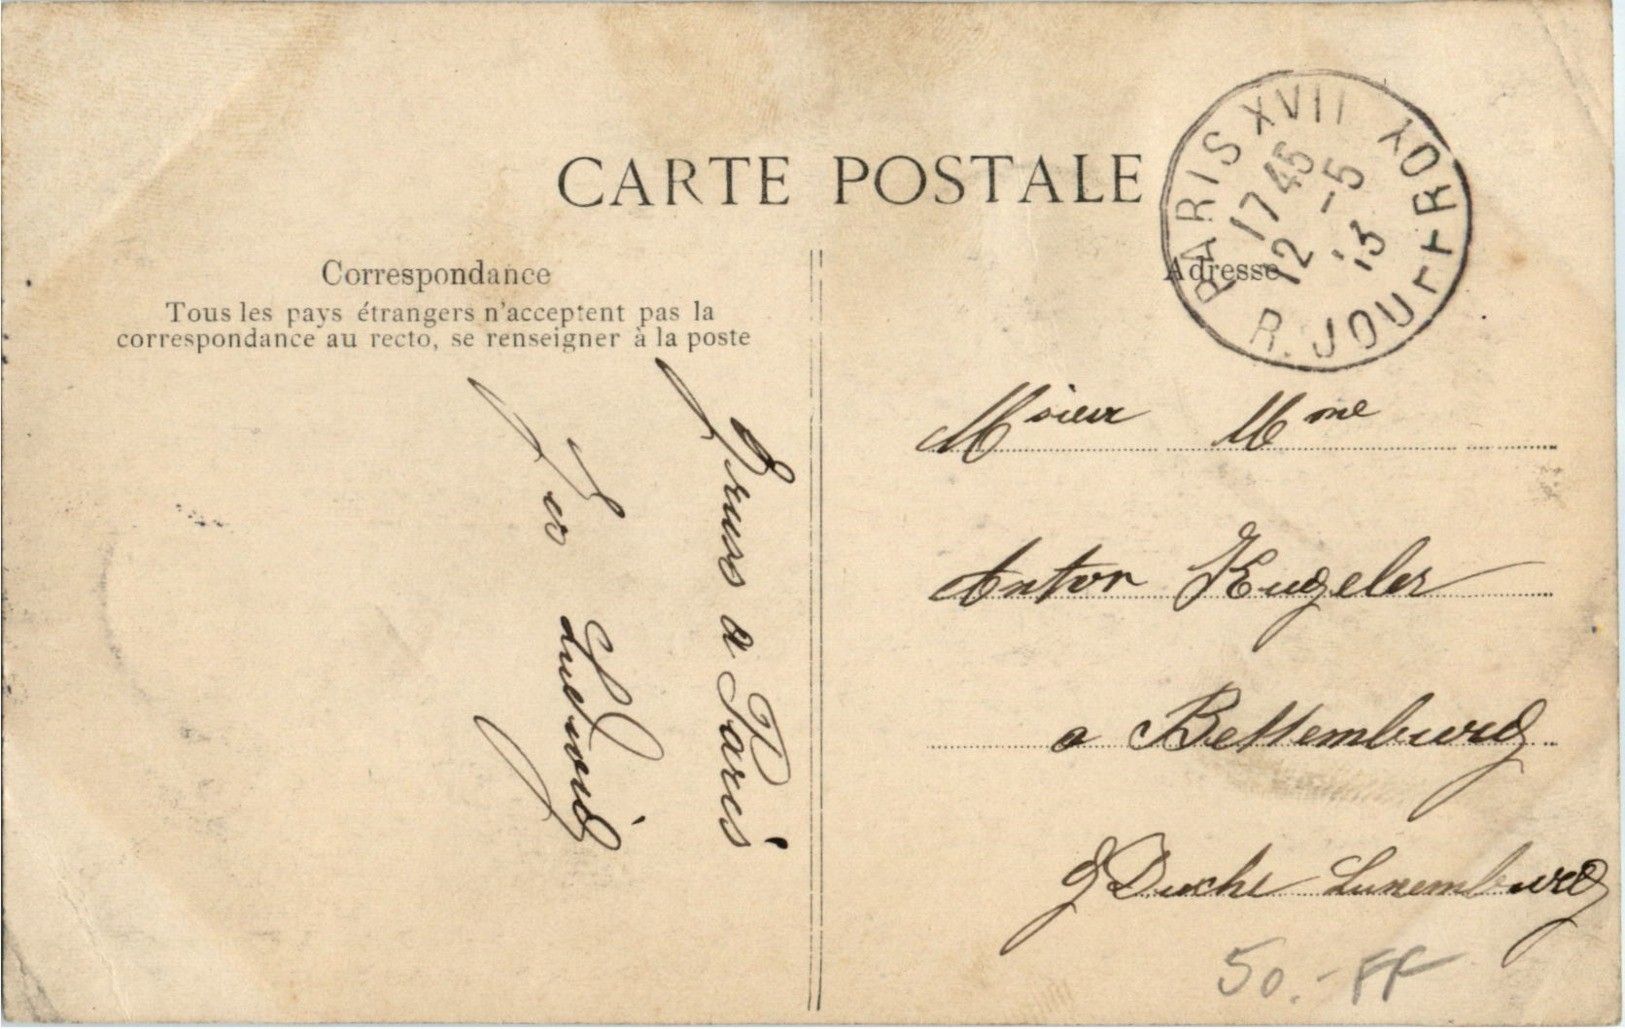 CARTE POSTALE
PARIS XVII R. JOUFFROY
17 45
12 -5
13
Correspondance
Tous les pays étrangers n'acceptent pas la
correspondance au recto, se renseigner à la poste
Adresse
Gruss a Paris
Ludwig
Msieur Mme
Anton Kugeler
a Bettemburg
G Duche Luxemburg
50.- FF